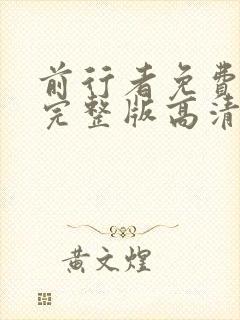 前行者免费
完整版高清
黄文煌